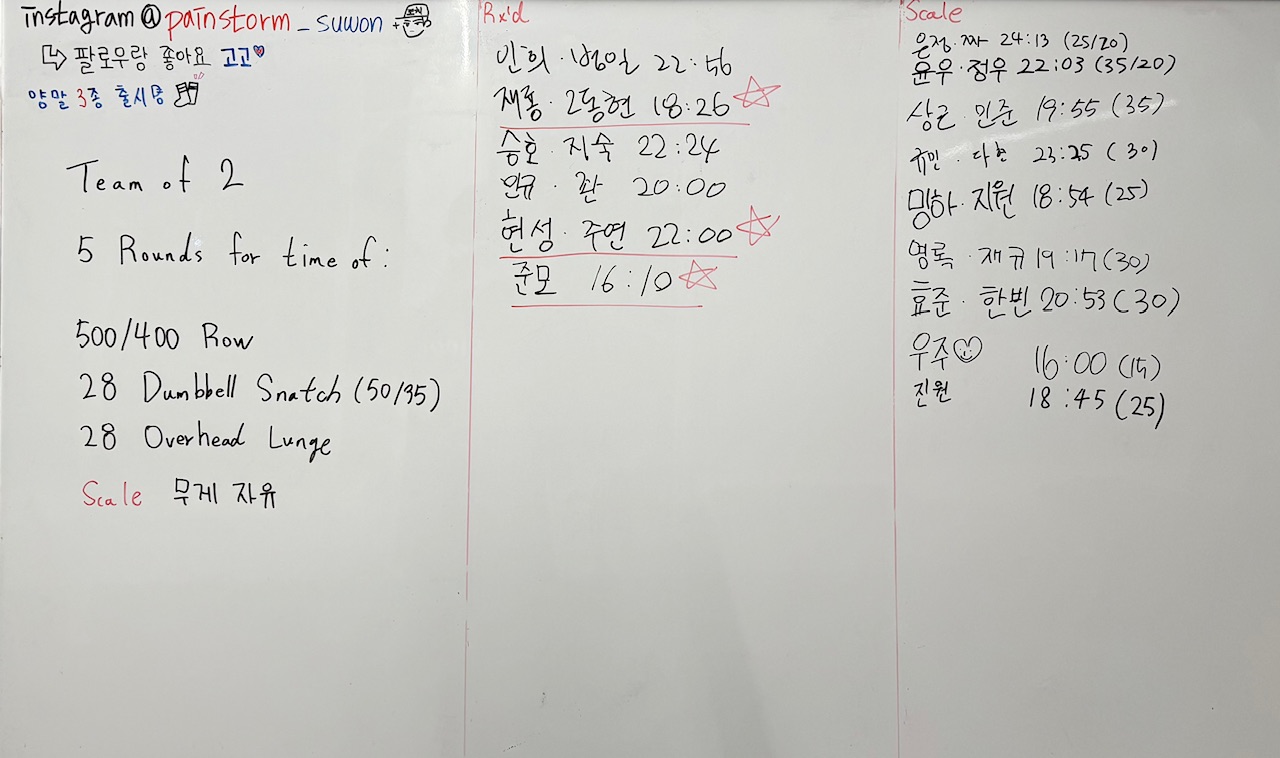 instagram@painstorm_suwon +
팔로우랑 좋아요 고고
양말 3종 출시중
Team of 2
5 Rounds for time of:
500/400 Row
28 Dumbbell Snatch (50/35)
28 Overhead Lunge
Scale 무게 자유
Rx'd
인희·병일 22:56
재풍·2동현 18:26
승호·지숙 22:24
인규·환 20:00
현성·주연 22:00
준모 16:10
Scale
은정·짜 24:13 (25/20)
윤우·정우 22:03 (35/20)
상근·민준 19:55 (35)
규민·다현 23:25 (30)
밍하·지원 18:54 (25)
영록·재규 19:17 (30)
효준·한빈 20:53 (30)
우주 16:00 (15)
진원 18:45 (25)